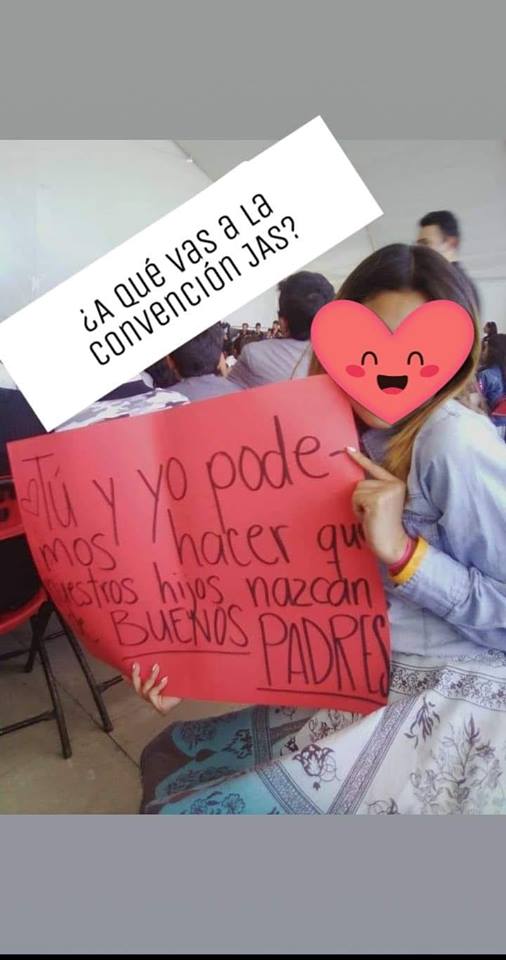 ¿A qué vas a la
convención JAS?
Tú y yo pode-
mos hacer qu
estros hijos nazcan
BUENOS PADRES